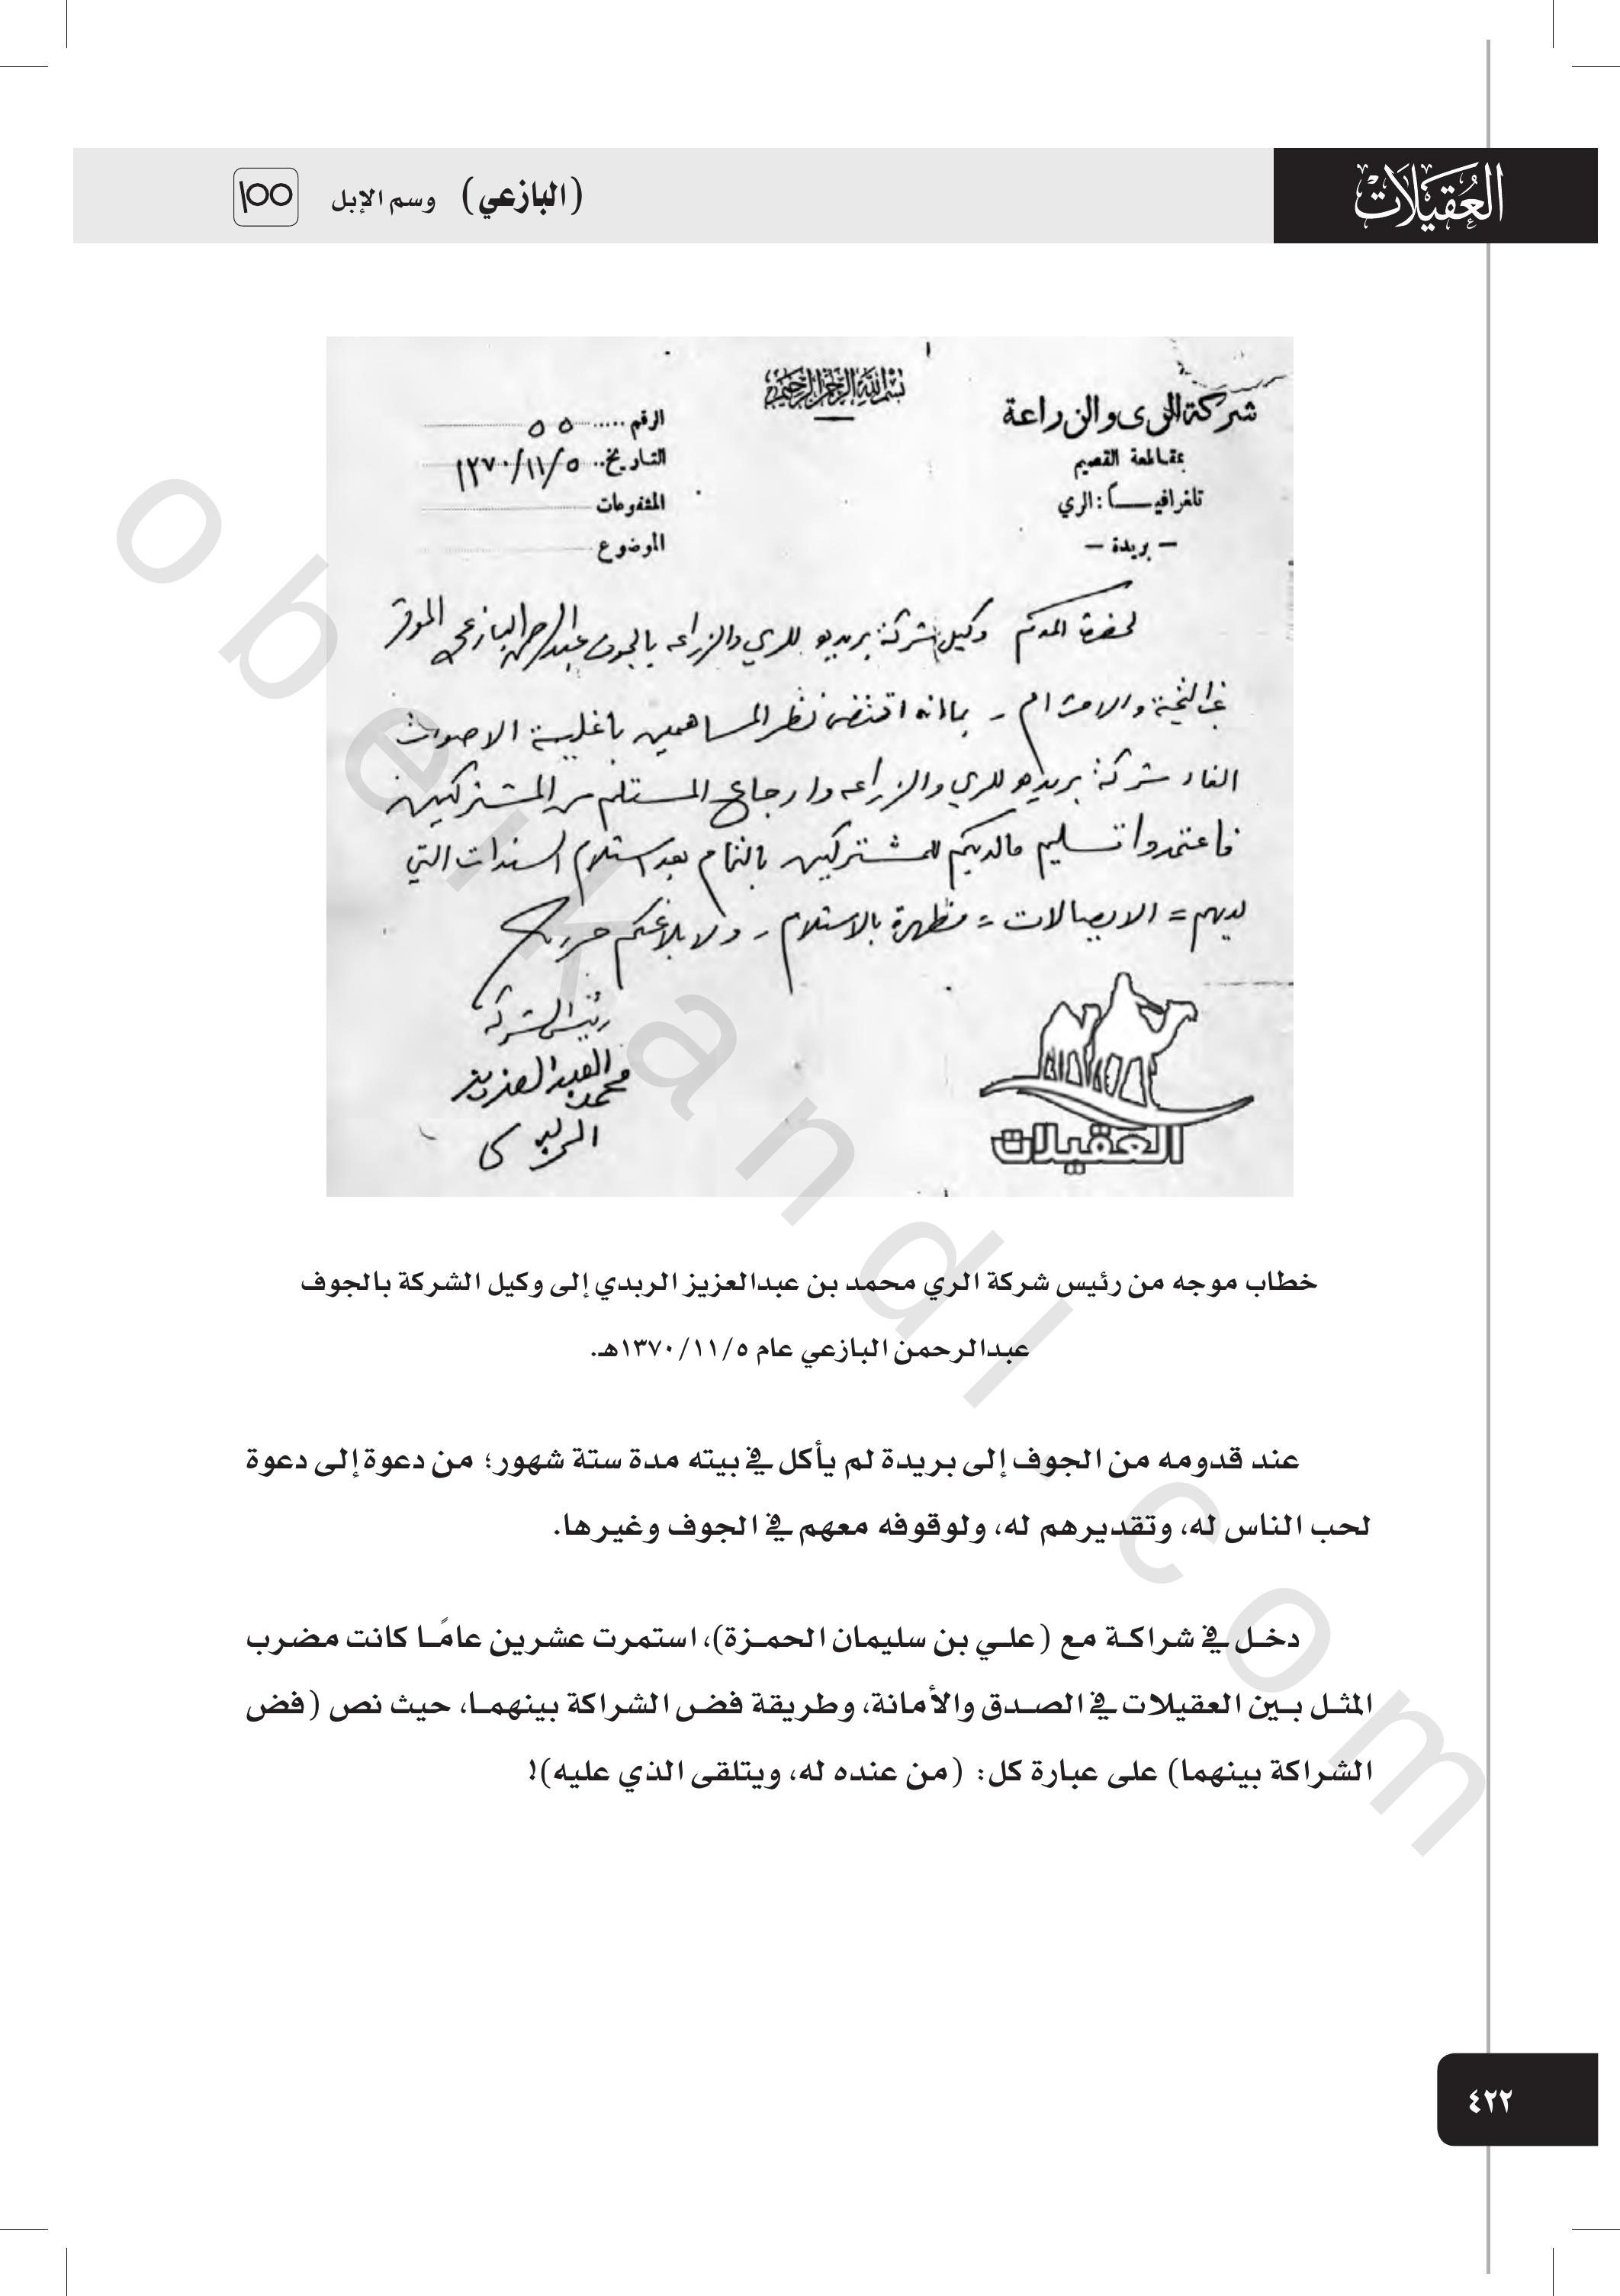 العُقيلات
(البازعي) وسم الإبل
بسم الله الرحمن الرحيم
شركة الري والزراعة
بمقاطعة القصيم
تلغرافيـــاً : الري
– بريدة –
الرقم ٥٥
التاريخ ١٣٧٠/١١/٥
المشفوعات
الموضوع
لحضرة المكرم وكيل شركة بريده للري والزراعه بالجوف عبدالرحمن البازعي الموقر
التحية والاحترام - بما انه اقتضى نظر المساهمين باغلبية الاصوات
الغاء شركة بريده للري والزراعه وارجاع المستلم من المشتركين
فاعتمدوا تسليم مالديكم للمشتركين بالتمام بعد استلام السندات التي
لديهم = الايصالات = مظهرة بالاستلام - ولابلاغكم حرر
رئيس الشركة
محمد العبدالعزيز
الربدي
العقيلات
خطاب موجه من رئيس شركة الري محمد بن عبدالعزيز الربدي إلى وكيل الشركة بالجوف
عبدالرحمن البازعي عام ١٣٧٠/١١/٥هـ.
عند قدومه من الجوف إلى بريدة لم يأكل في بيته مدة ستة شهور؛ من دعوة إلى دعوة
لحب الناس له، وتقديرهم له، ولوقوفه معهم في الجوف وغيرها.
دخل في شراكة مع (علي بن سليمان الحمزة)، استمرت عشرين عامًا كانت مضرب
المثل بين العقيلات في الصدق والأمانة، وطريقة فض الشراكة بينهما، حيث نص (فض
الشراكة بينهما) على عبارة كل: (من عنده له، ويتلقى الذي عليه)!
٤٢٢
obeikandl.com